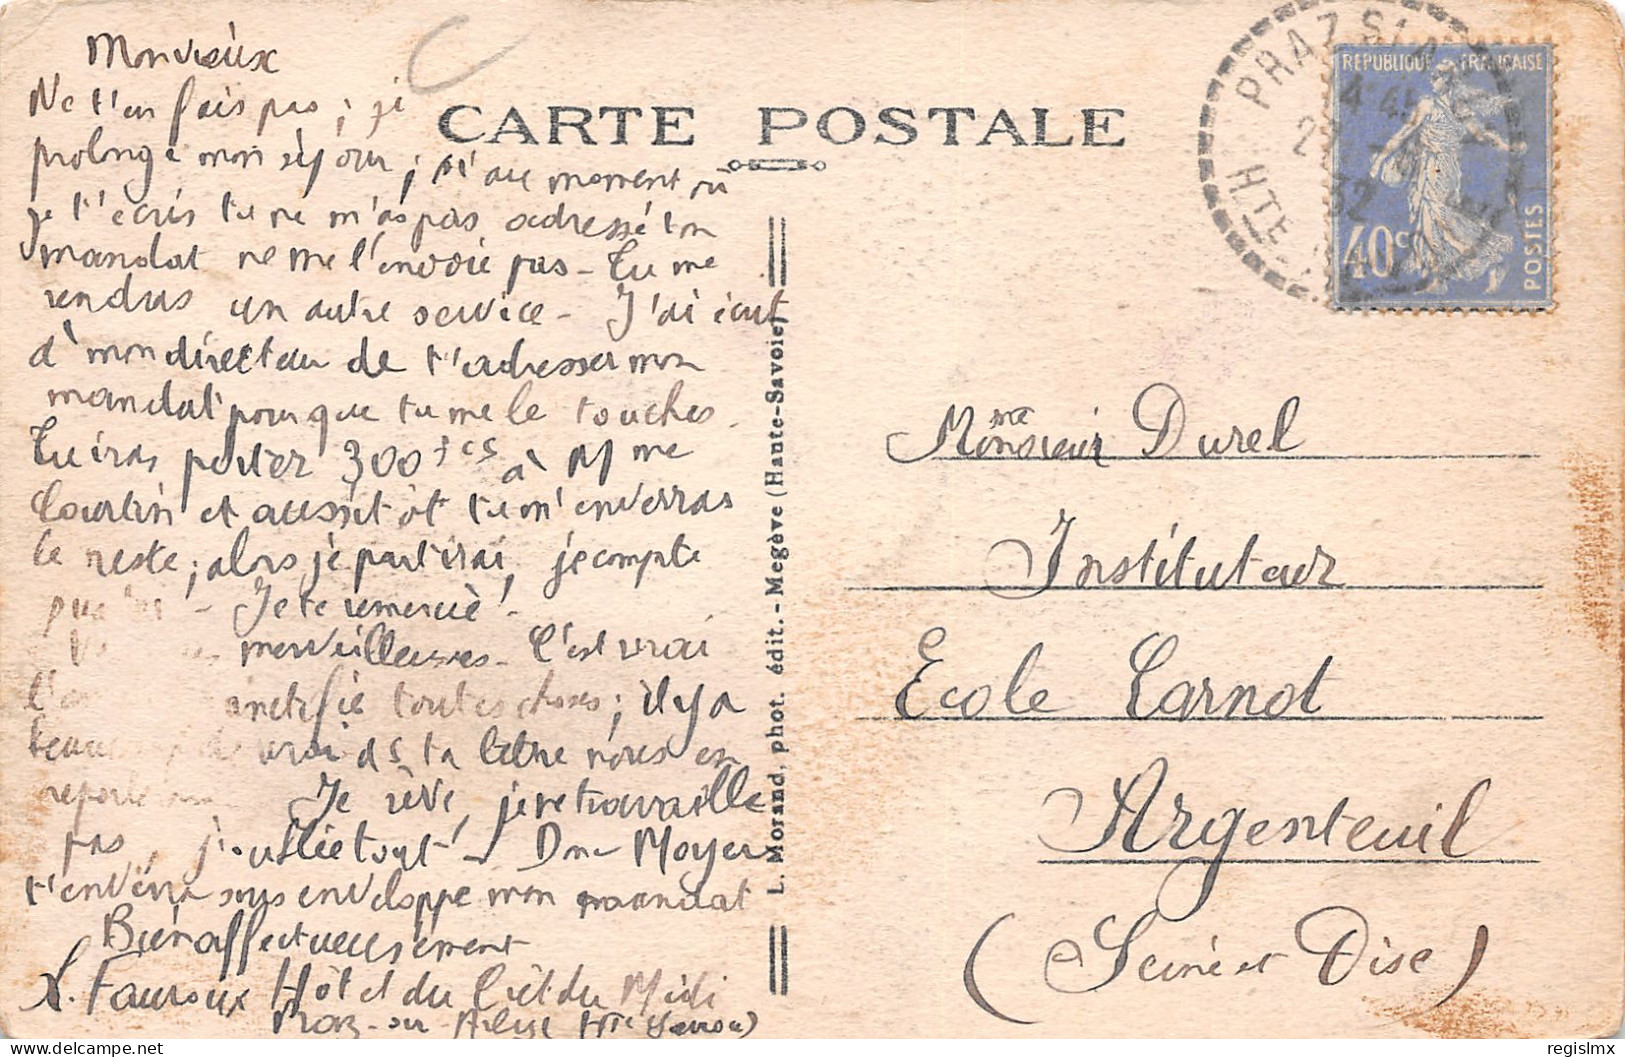 Mon vieux
Ne t'en fais pas ; je
prolonge mon séjour ; si au moment où
je t'écris tu ne m'as pas adressé ton
mandat ne me l'envoie pas - Tu me
rendras un autre service - J'ai écrit
à mon directeur de t'adresser mon
mandat pour que tu me le touches.
Tu iras porter 300 fcs à Mme
Courtin et aussitôt tu m'enverras
le reste ; alors je partirai, je compte
Je te remercie -
merveilleuses - C'est vrai
toutes choses ; il y a
beaucoup de vrai ds ta lettre nous en
Je rêve, je ne travaille
pas, j'oublie tout - Donc Moyer
t'enverra sous enveloppe mon mandat
Bien affectueusement
L. Fauroux Hôtel du Crêt du Midi
Praz-sur-Arly Hte Savoie)
CARTE POSTALE
L. Morand, phot. édit. - Megève (Haute-Savoie)
PRAZ SLA
HTE
32
REPUBLIQUE FRANÇAISE
40c
POSTES
Mme
Monsieur Durel
Instituteur
Ecole Carnot
Argenteuil
(Seine et Oise)
delcampe.net
regislmx